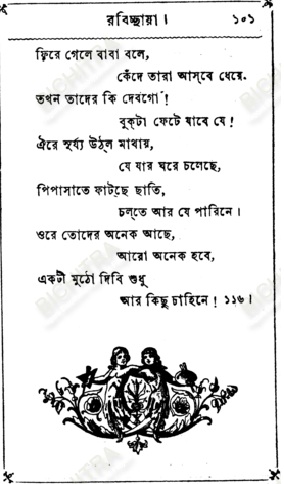 রবিচ্ছায়া। ১০১
ফিরে গেলে বাবা বলে,
কেঁদে তারা আস্‌বে ধেয়ে.
তখন তাদের কি দেবগো!
বুক্‌টা ফেটে যাবে যে!
ঐরে সূর্য্য উঠ্‌ল মাথায়,
যে যার ঘরে চলেছে,
পিপাসাতে ফাট্‌ছে ছাতি,
চল্‌তে আর যে পারিনে।
ওরে তোদের অনেক আছে,
আরো অনেক হবে,
একটী মুঠো দিবি শুধু
আর কিছু চাহিনে! ১১৬।
BICHITRA